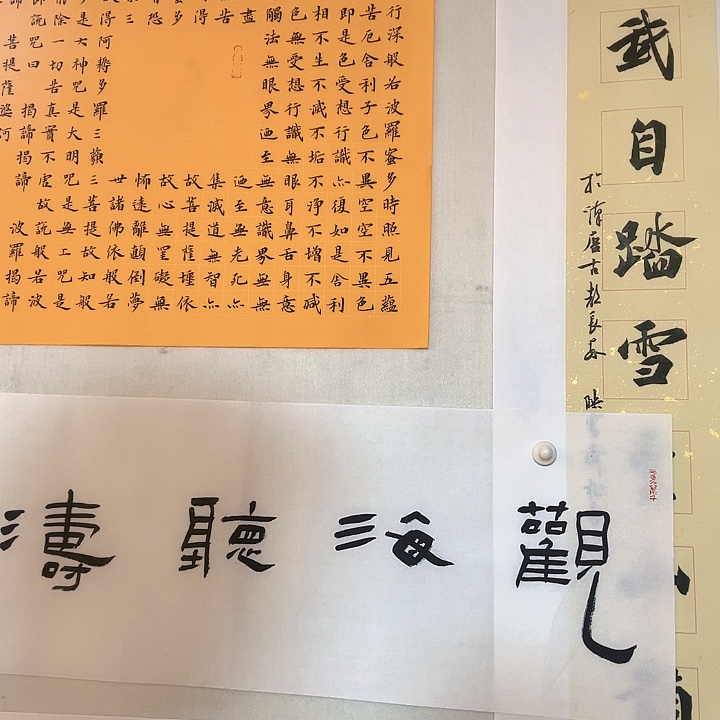 行深般若波羅蜜多時照見五蘊
苦厄舍利子色不異空空不異色
即是色受想行識亦復如是舍利
相不生不滅不垢不淨不增不減
色無受想行識無眼耳鼻舌身意
觸法無眼界迺至無意識界無無
盡 迺至無老死亦
苦 集滅道無智亦
得 故菩提薩埵依
多 故心無罣礙無
恐 怖遠離顛倒夢
三 世諸佛依般若
得阿耨多羅三藐三菩提故知般
是大神咒是大明咒是無上咒是
除一切苦真實不虛故說般若波
說咒曰 揭諦揭諦 波羅揭諦
菩提薩婆訶
武自踏雪
觀海聽濤